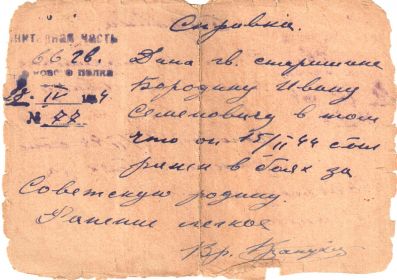 Справка.
нитарная часть
66 гв.
кового полка
22-IV 194
№ 77
Дана гв. старшине
Бородину Ивану
Семеновичу в том
что он 15/II 44 был
ранен в боях за
Советскую родину.
Ранение легкое
Вр.